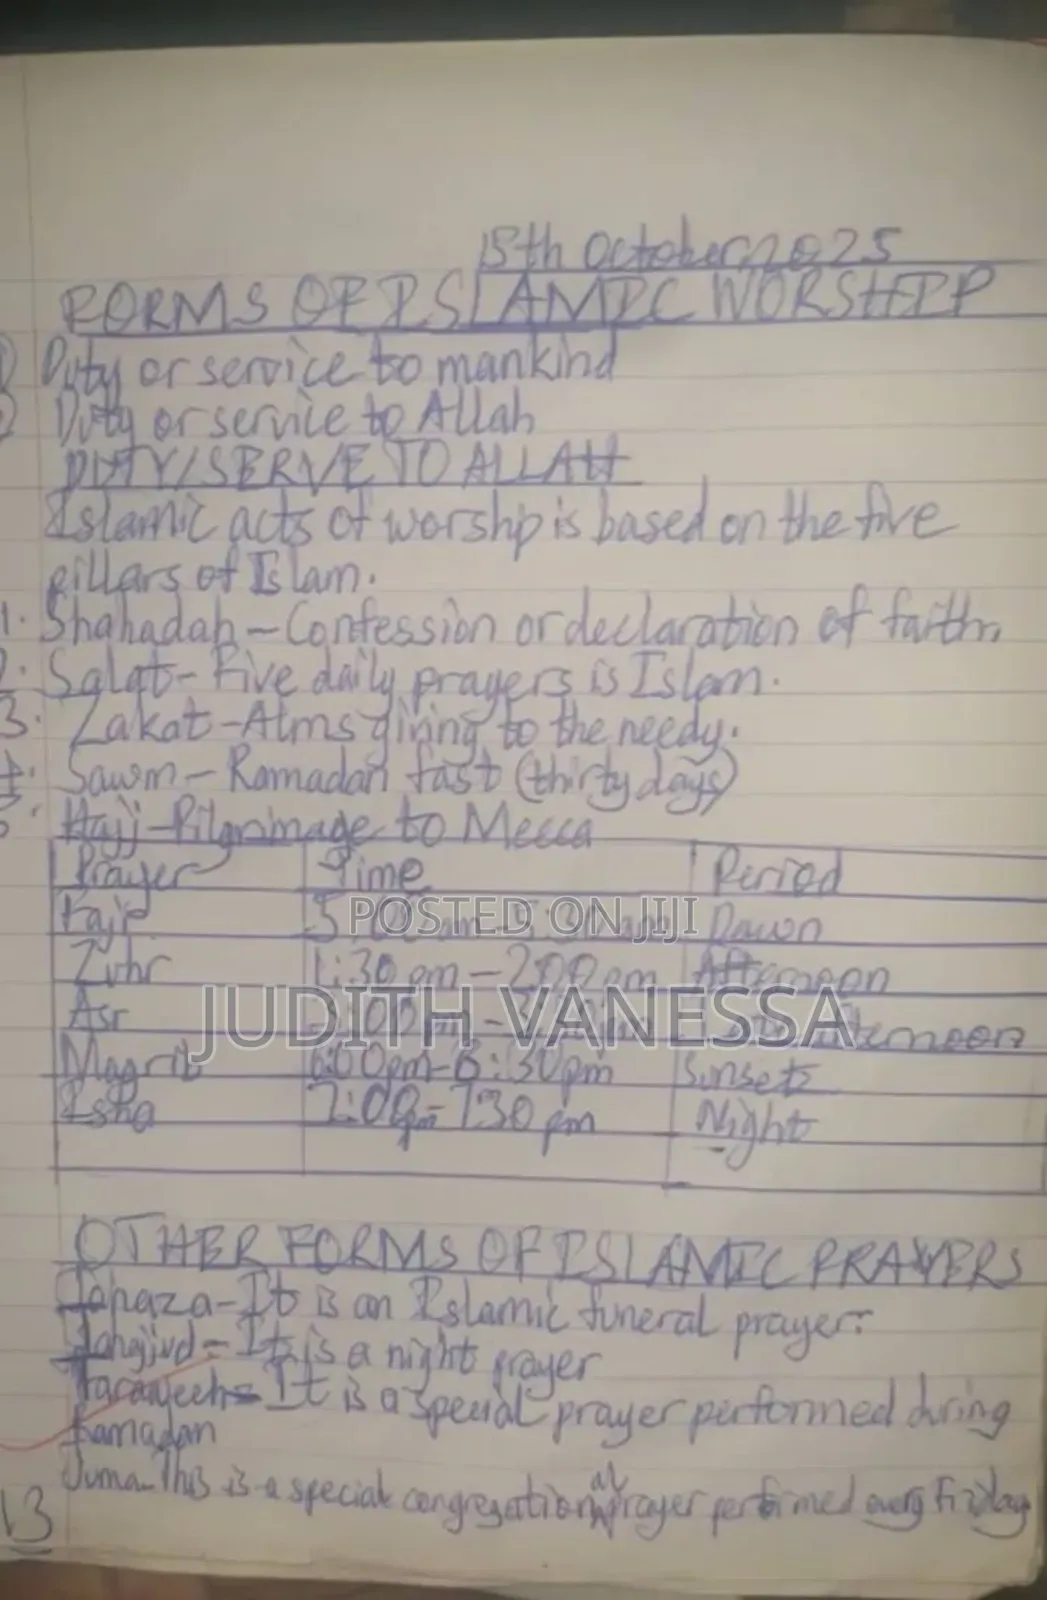 15th October 2025
FORMS OF ISLAMIC WORSHIP
Duty or service to mankind
Duty or service to Allah
DUTY/SERVE TO ALLAH
Islamic acts of worship is based on the five
pillars of Islam.
1. Shahadah - Confession or declaration of faith.
2. Salat - Five daily prayers is Islam.
3. Zakat - Alms giving to the needy.
4. Sawm - Ramadan fast (thirty days)
5. Hajj - Pilgrimage to Mecca
Prayer Time Period
Fajr 5:00am - 5:30am Dawn
POSTED ON JIJI
Zuhr 1:30pm - 2:00pm Afternoon
Asr Afternoon
JUDITH VANESSA
Magrib 6:00pm - 6:30pm Sunset
Isha 7:00pm - 7:30pm Night
OTHER FORMS OF ISLAMIC PRAYERS
Janaza - It is an Islamic funeral prayer.
Tahgjud - It is a night prayer
It is a special prayer performed during
Ramadan
Juma - This is a special congregational prayer performed every Friday
13